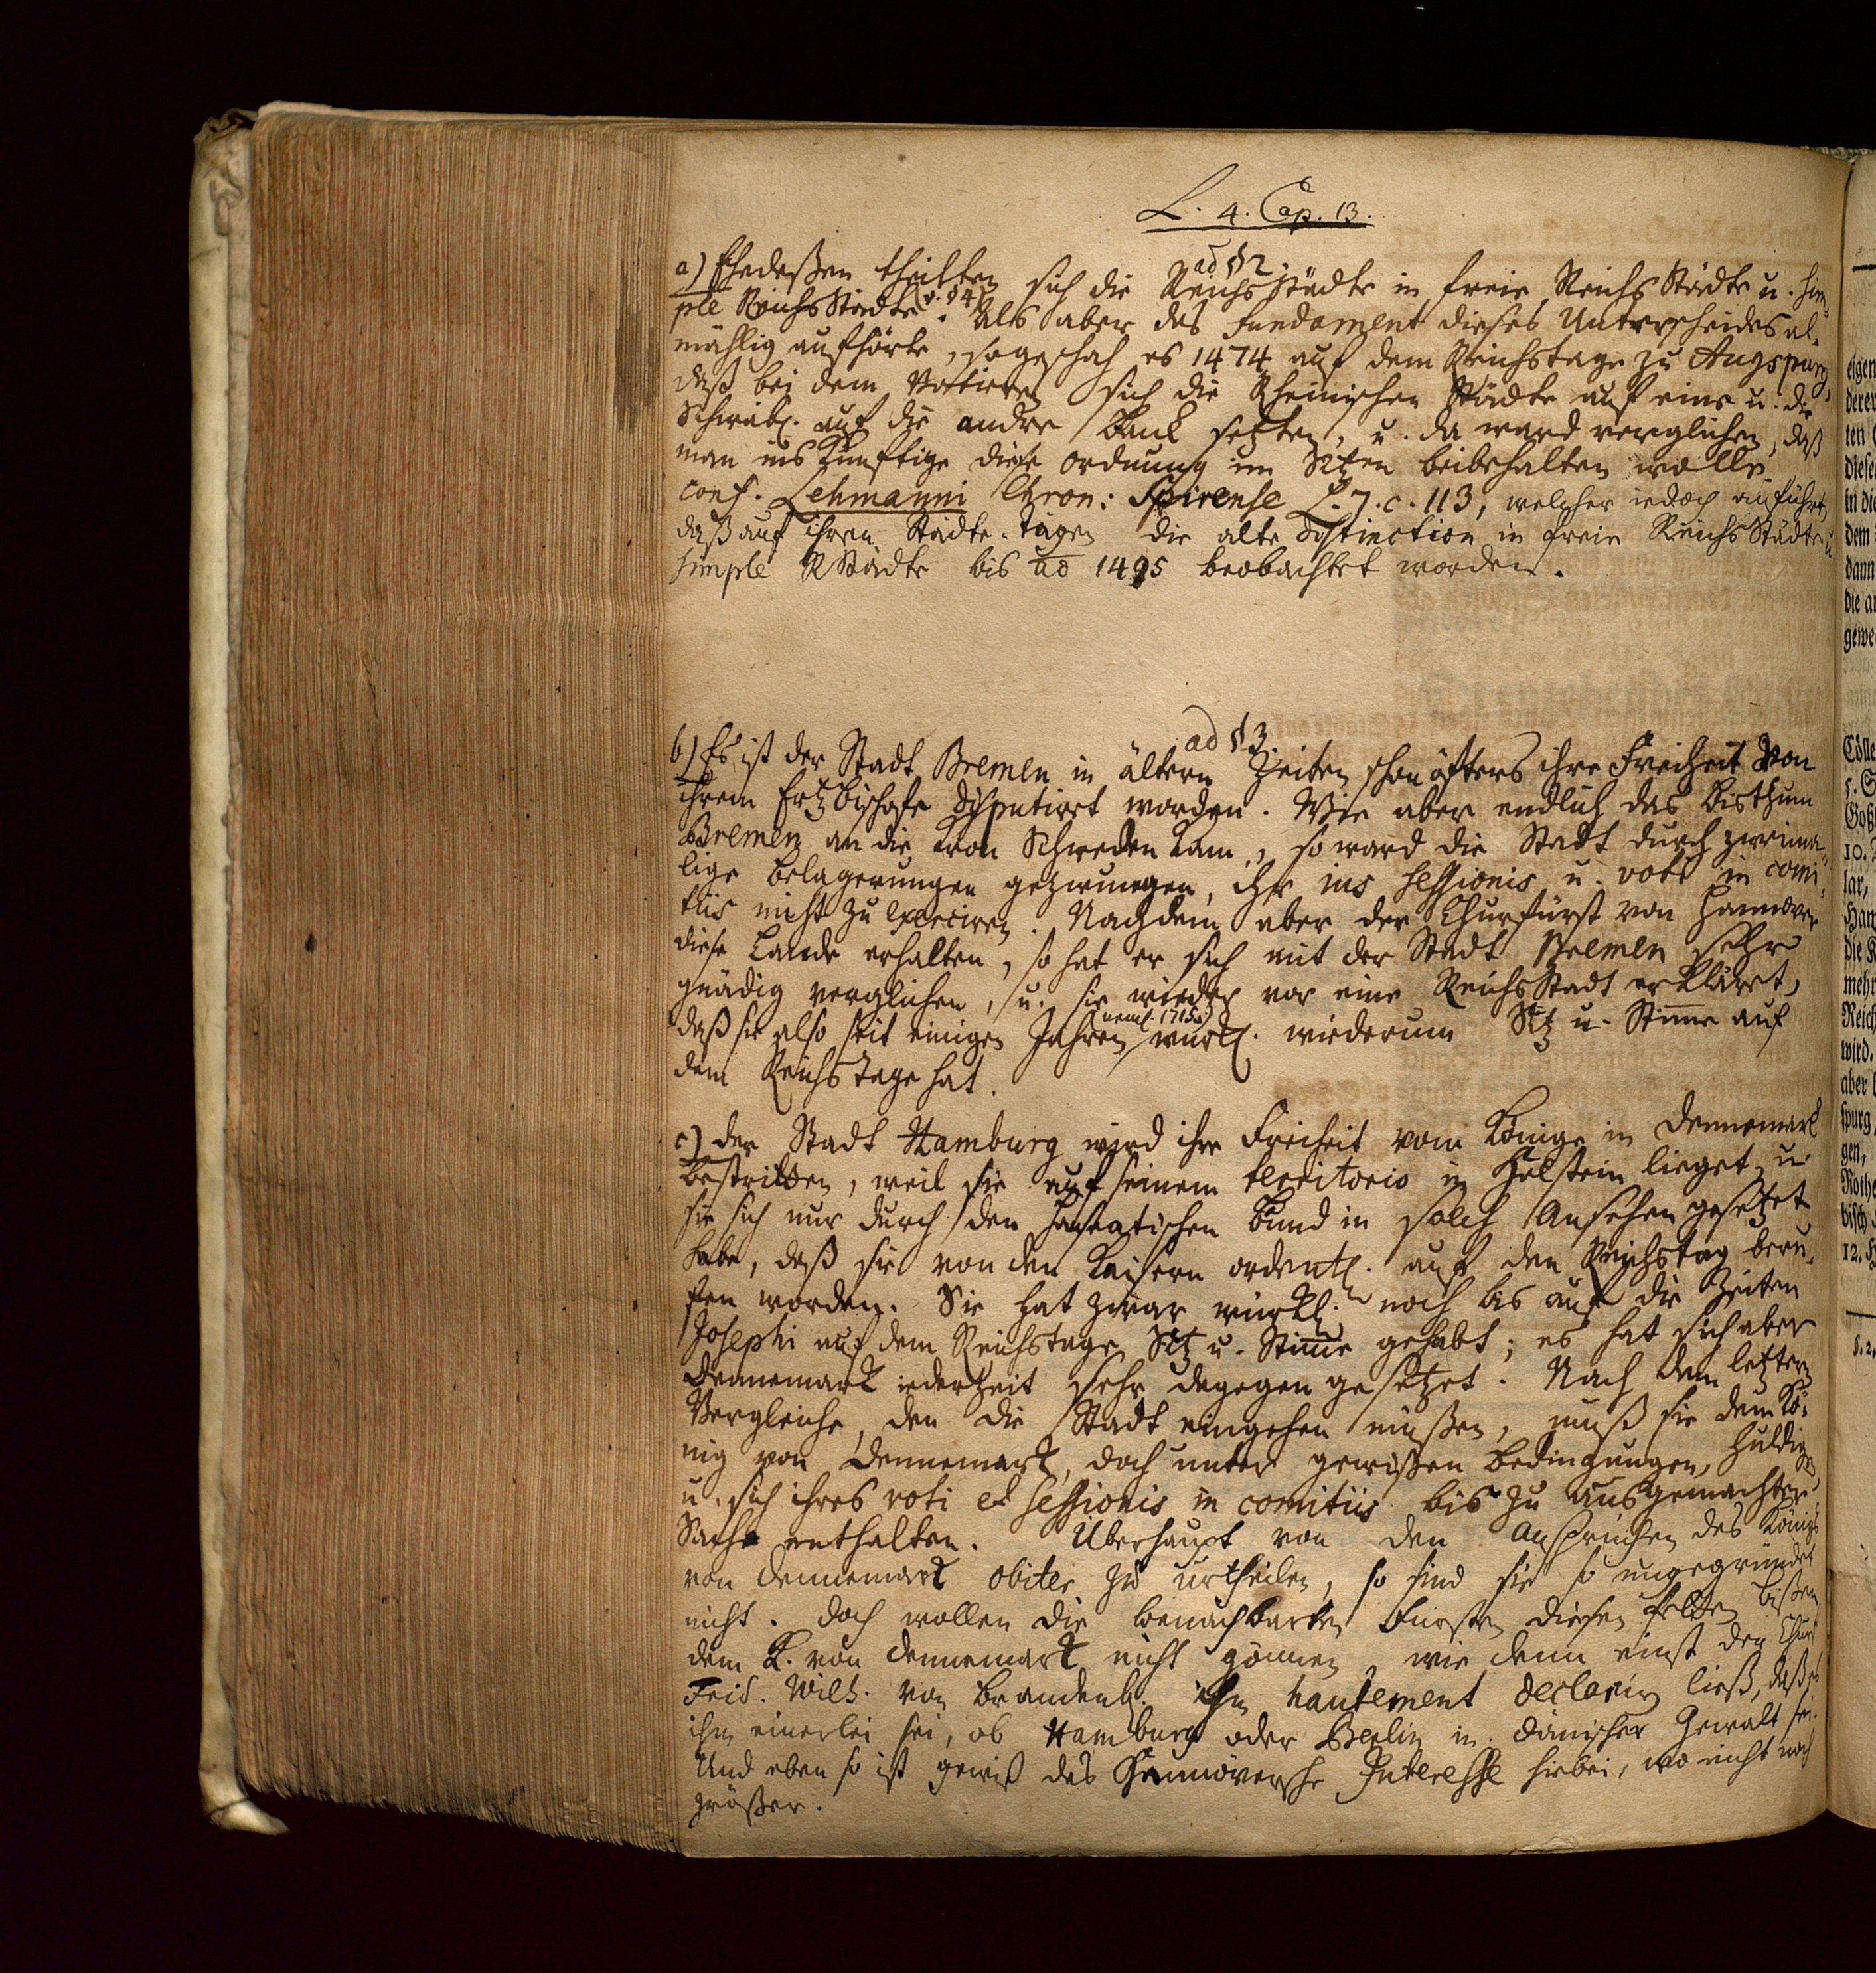 L. 4. Cap. 13.
ad § 2.
a) Ehedeßen theilten sich die Reichs Städte in freie Reichs Städte u. sim-
ple Reichs Städte (v. § 4). Als aber das fundament dieses Unterscheides al-
mählig aufhörte, so geschah es 1474 auf dem Reichstage zu Augspurg,
daß bei dem Votieren sich die Rheinischen Städte auf eine u. die
Schwäb. auf die andre Bank setzten, u. da ward verglichen, daß
man ins Künftige diese Ordnung im Sitzen beibehalten wolle.
conf. Lehmanni Chron: Spirense L. 7. c. 113, welcher iedoch anführt,
daß auf ihren Städte-tägen die alte distinction in freie Reichs Städte u.
simple RStädte bis ad 1495 beobachtet worden.
ad § 3.
b) Es ist der Stadt Bremen in ältern Zeiten schon öfters ihre Freiheit von
ihrem Ertzbischofe disputiret worden. Wie aber endlich das Bisthum
Bremen an die Kron Schweden kam, so ward die Stadt durch zweima-
lige Belagerungen gezwungen, ihr ius sessionis u. voti in comi-
tiis nicht zu exerciren. Nachdem aber der Churfürst von Hannover
diese Lande erhalten, so hat er sich mit der Stadt Bremen sehr
gnädig verglichen, u. sie wieder vor eine Reichs Stadt erkläret,
daß sie also seit einigen Jahren (neml. 1715.) würkl. wiederum Sitz u. Stimme auf
dem Reichs Tage hat.
c) Der Stadt Hamburg wird ihre Freiheit vom Könige in Dennemark
bestritten, weil sie auf seinem territorio in Holstein lieget, u.
sie sich nur durch den Hanseatischen Bund in solch Ansehen gesetzet
habe, daß sie von den Kaisern ordentl. auf den Reichstag beru-
fen worden. Sie hat zwar würkl. noch bis auf die Zeiten
Josephi auf dem Reichstage Sitz u. Stimme gehabt; es hat sich aber
Dennemark iederzeit sehr dagegen gesetzet. Nach dem letztern
Vergleiche, den die Stadt eingehen müßen, muß sie dem Kö-
nig von Dennemark, doch unter gewißen Bedingungen, huldigen
u. sich ihres voti et sessionis in comitiis bis zu ausgemachter
Sache enthalten. Überhaupt von den Ansprüchen des Königs
von Dennemark obiter zu urtheilen, so sind sie so ungegründet
nicht. Doch wollen die benachbarten Fürsten diesen fetten Bißen
dem K. von Dennemark nicht gönnen, wie denn einst der Churf.
Frid. Wilh. von Brandenb. ihm hautement declariren ließ, daß es
ihm einerlei sei, ob Hamburg oder Berlin in dänischer Gewalt sei.
Und eben so ist gewiß das Hannöversche Interesse hiebei, wo nicht noch
größer.